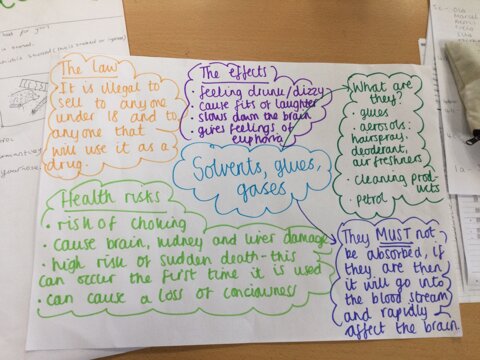 The law
· It is illegal to
sell to anyone
under 18 and to
anyone that
will use it as a
drug.
The effects
· feeling drunk/dizzy
· cause fits of laughter
· slows down the brain
· gives feelings of
euphoria
What are
they?
· glues
· aerosols:
hairspray,
deoderant,
airfresheners
· cleaning prod-
ucts
· petrol
Solvents, glues,
gases
Health risks
· risk of choking
· cause brain, kidney and liver damage
· high risk of sudden death-this
can occur the first time it is used
· can cause a loss of conciowness
They MUST not
be absorbed, if
they are then
it will go into
the blood stream
and rapidly
affect the brain.